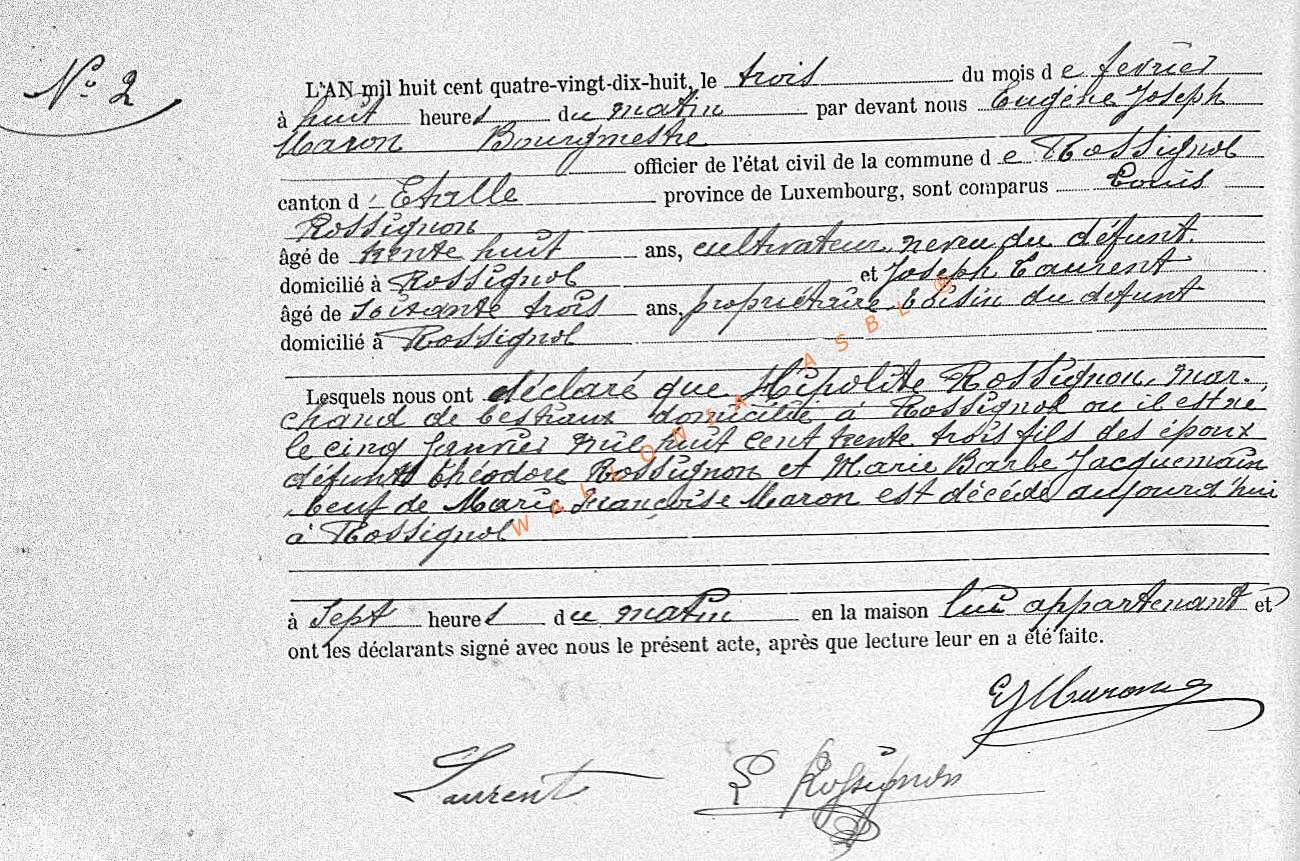 N° 2
L'AN mil huit cent quatre-vingt-dix-huit, le trois du mois de fevrier
à huit heures du matin par devant nous Eugène Joseph
Maron Bourgmestre
officier de l'état civil de la commune de Rossignol
canton d'Etalle province de Luxembourg, sont comparus Louis
Rossignon
âgé de trente huit ans, cultivateur, neveu du défunt.
domicilié à Rossignol et Joseph Laurent
âgé de soixante trois ans, propriétaire, voisin du défunt
domicilié à Rossignol
Lesquels nous ont déclaré que Hipolite Rossignon, mar-
chand de bestiaux domicilié à Rossignol ou il est né
le cinq Janvier mil huit cent trente trois fils des époux
défunts théodore Rossignon et Marie Barbe Jacquemain
veuf de Marie Françoise Maron est décédé aujourd'hui
à Rossignol
à Sept heures du matin en la maison lui appartenant et
ont les déclarants signé avec nous le présent acte, après que lecture leur en a été faite.
EJMaron
Laurent L Rossignon
WALLONIA ASBL ©